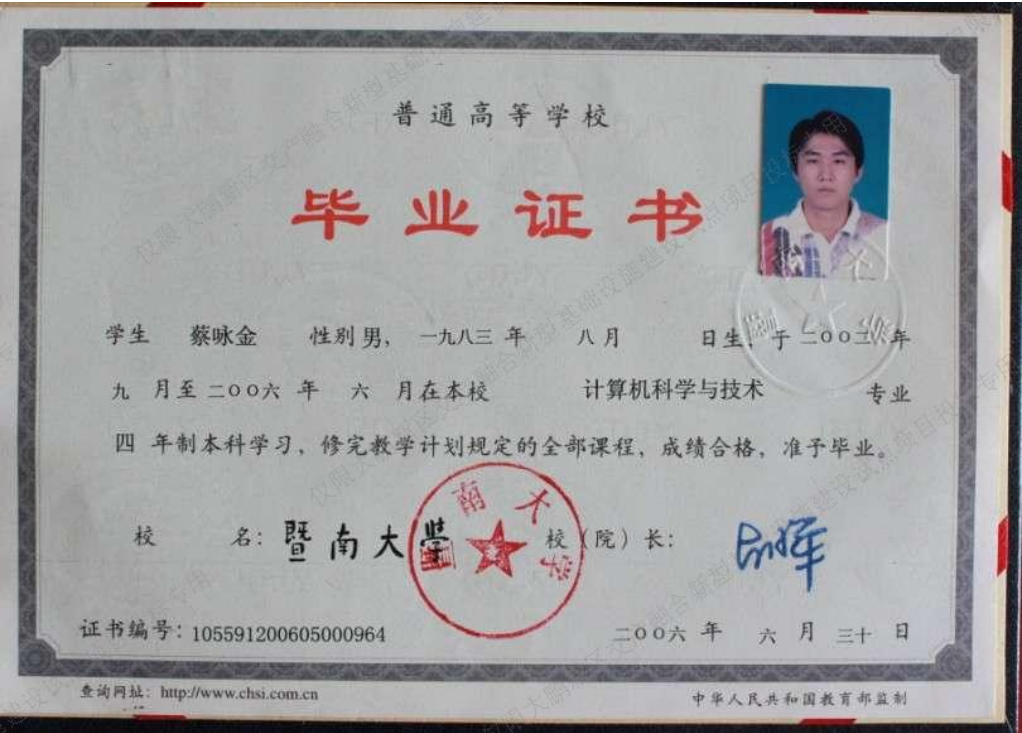 普通高等学校
毕业证书
学生 蔡咏金 性别男，一九八三年 八月 日生，于二〇〇二年
九 月至二〇〇六年 六 月在本校 计算机科学与技术 专业
四 年制本科学习，修完教学计划规定的全部课程，成绩合格，准予毕业。
校 名：暨南大學 校（院）长：
暨南大学
证书编号：105591200605000964 二〇〇六年 六 月 三十 日
查询网址：http://www.chsi.com.cn 中华人民共和国教育部监制